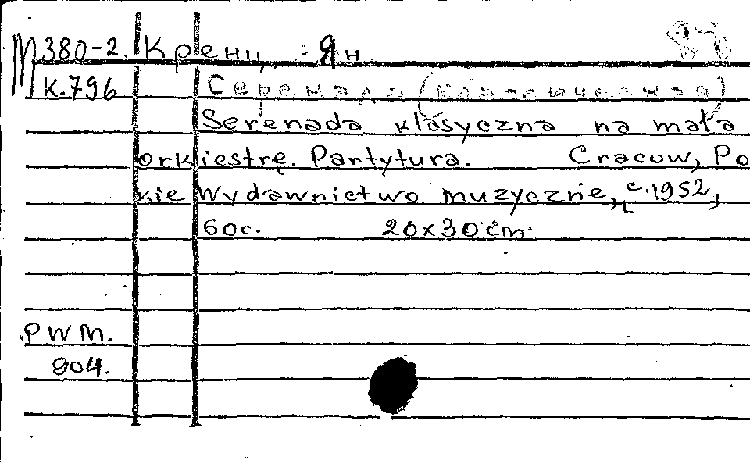 М 380-2. Кренц, Ян
К.796 Серенада (классическая)
Serenada klasyczna na małą
orkiestrę. Partytura. Cracow, Po
kie Wydawnictwo muzyczne, c.1952,
60c. 20x30 cm.
PWM.
904.